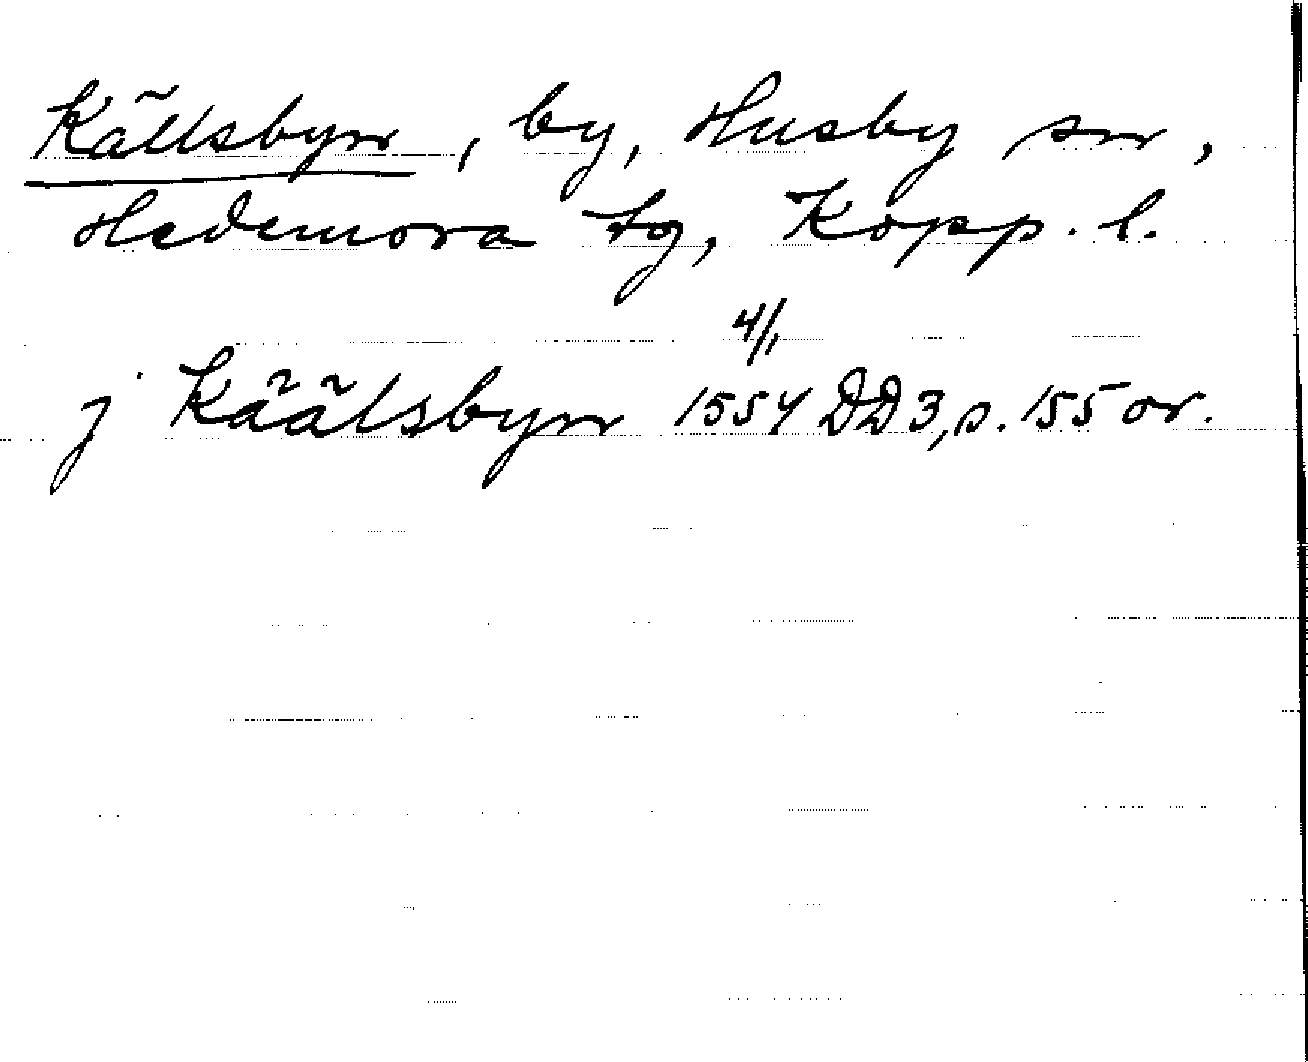 Källsbyn, by, Husby sn,
Hedemora tg, Kopp. l.
4/1
j Käälsbyn 1554 DD3, s. 155 or.